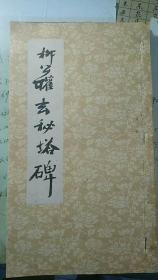 柳公權玄秘塔碑